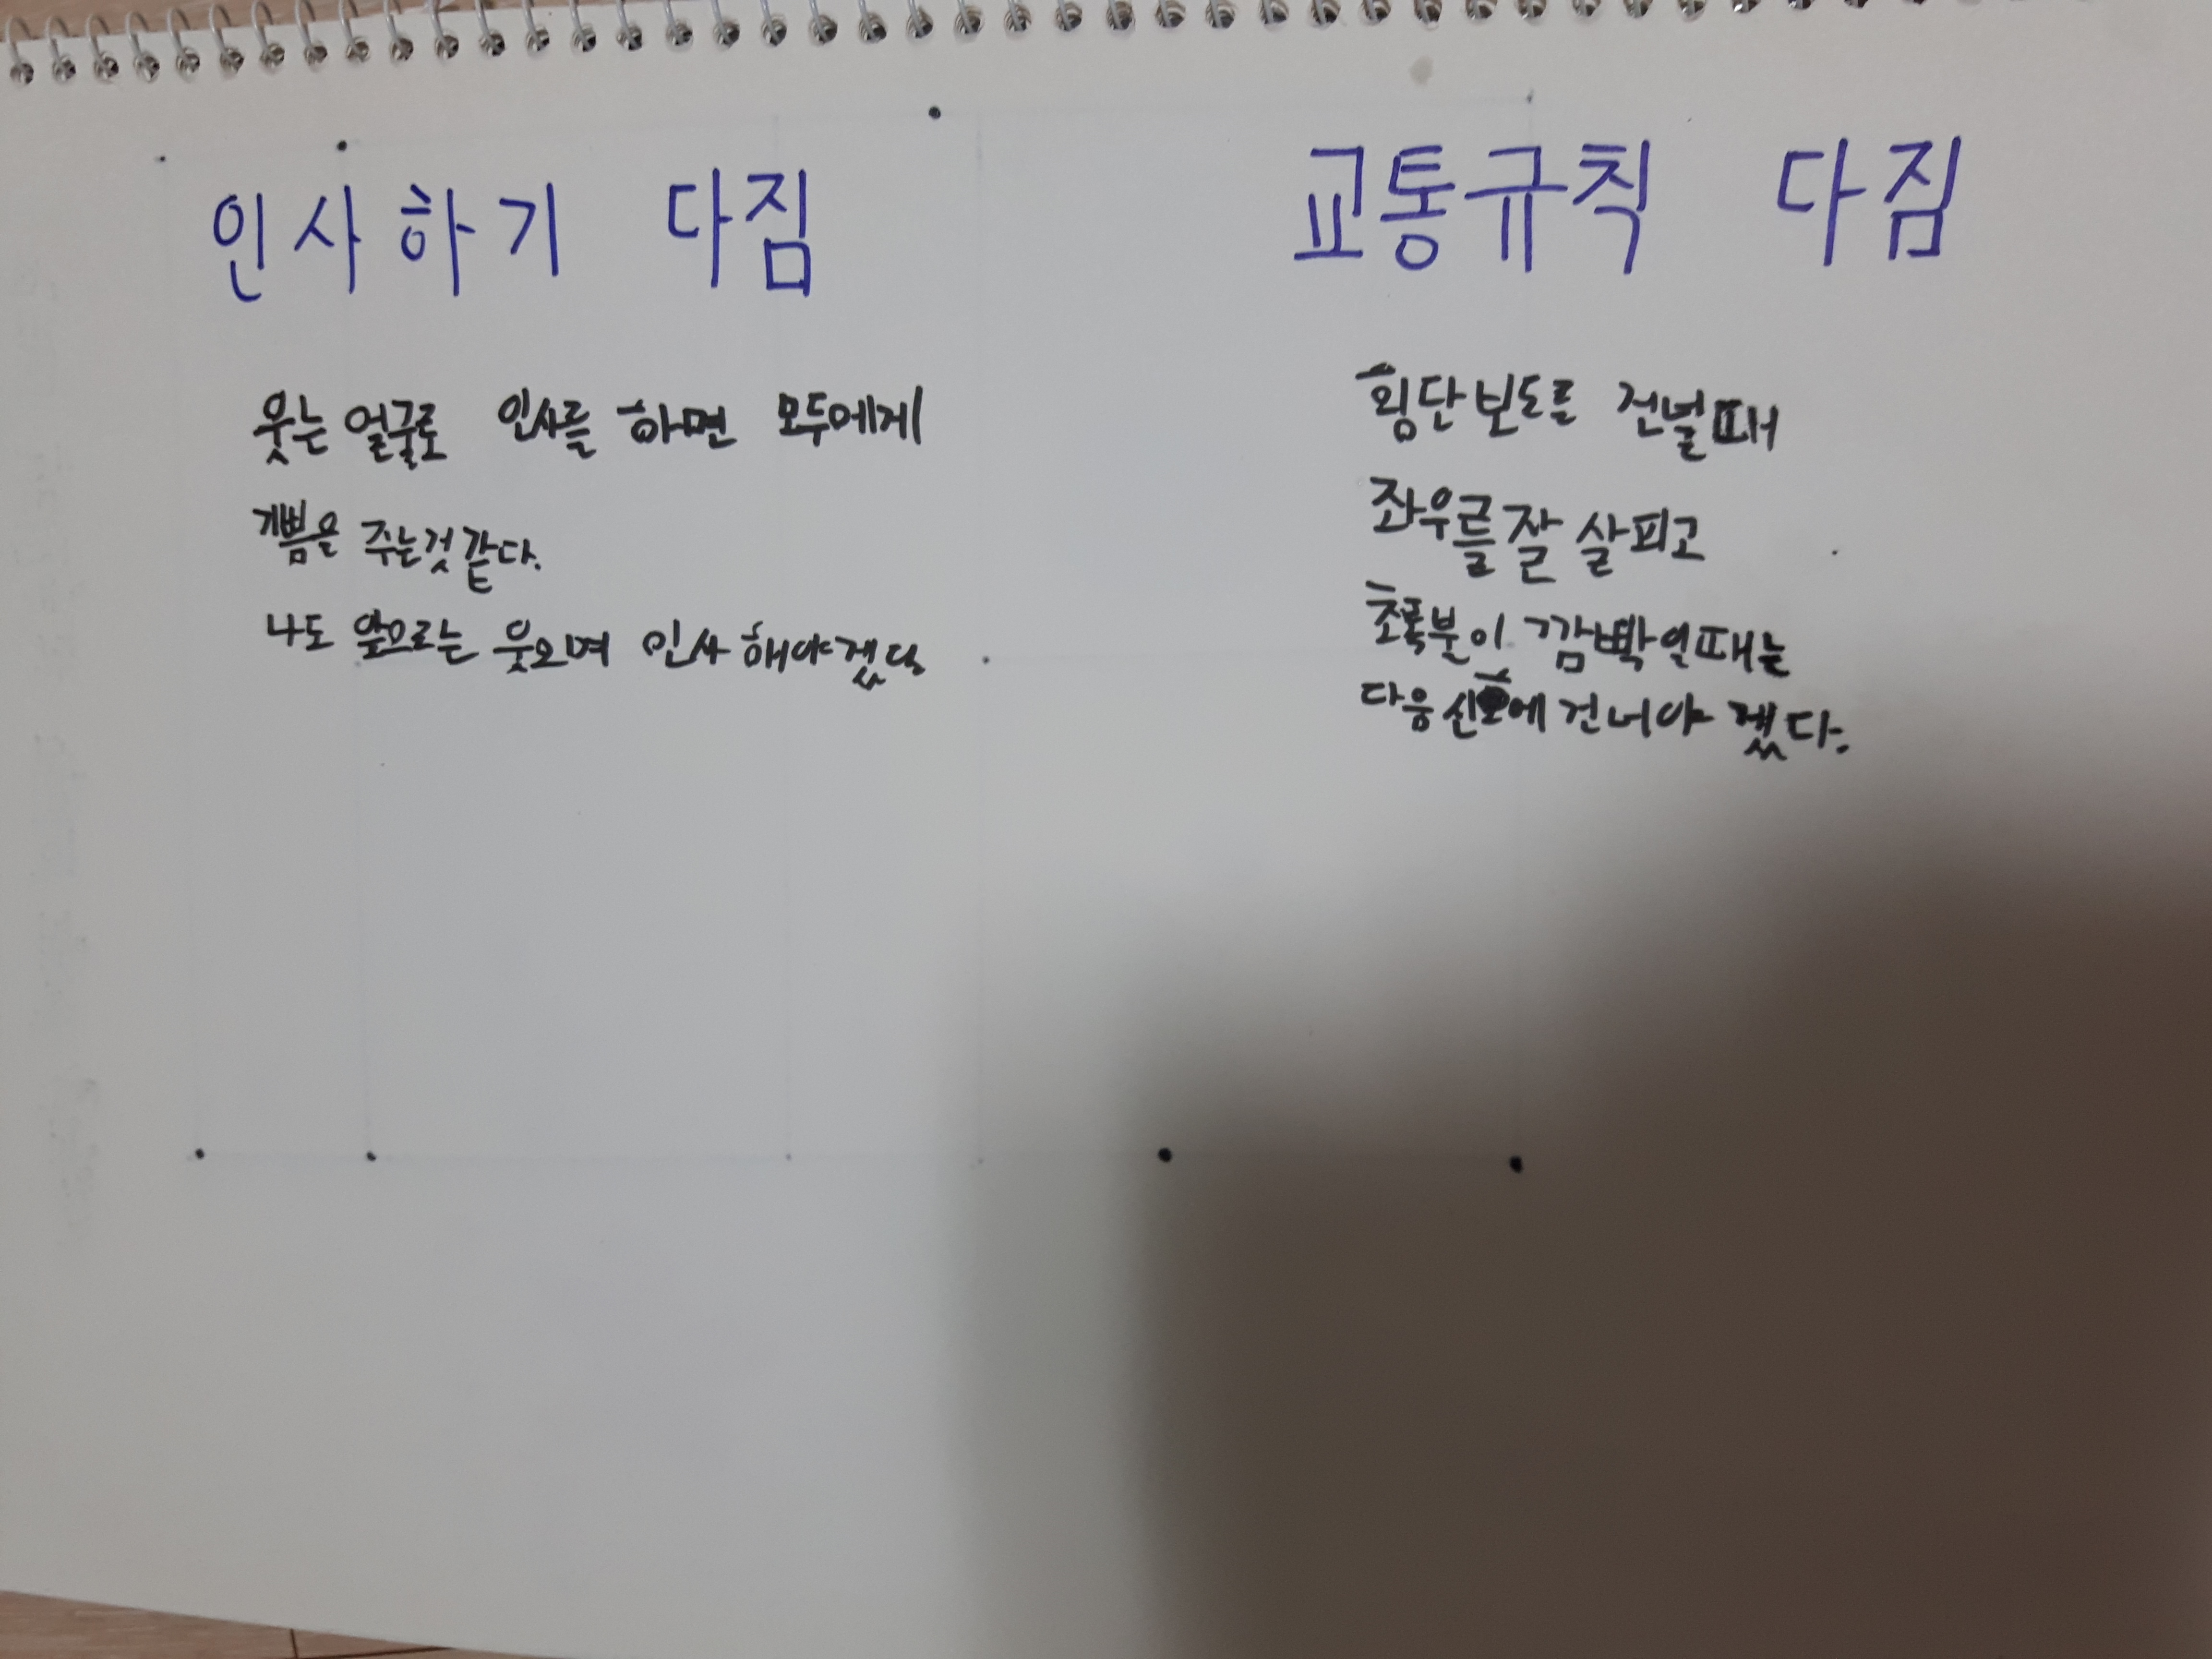 인사하기 다짐
웃는 얼굴로 인사를 하면 모두에게
기쁨을 주는것같다.
나도 앞으로는 웃으며 인사 해야겠다
교통규칙 다짐
횡단보도를 건널때
좌우를 잘 살피고
초록불이 깜박일때는
다음신호에 건너야 겠다.